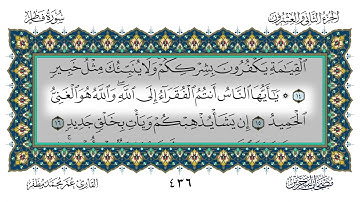 الجزء الثاني والعشرون
سورة فاطر
ٱلْقِيَٰمَةِ يَكْفُرُونَ بِشِرْكِكُمْ وَلَا يُنَبِّئُكَ مِثْلُ خَبِيرٍ
١٤ ۞ يَٰٓأَيُّهَا ٱلنَّاسُ أَنتُمُ ٱلْفُقَرَآءُ إِلَى ٱللَّهِ وَٱللَّهُ هُوَ ٱلْغَنِىُّ
ٱلْحَمِيدُ ١٥ إِن يَشَأْ يُذْهِبْكُمْ وَيَأْتِ بِخَلْقٍ جَدِيدٍ ١٦
٤٣٦
القارئ: عمر محمد مظفر